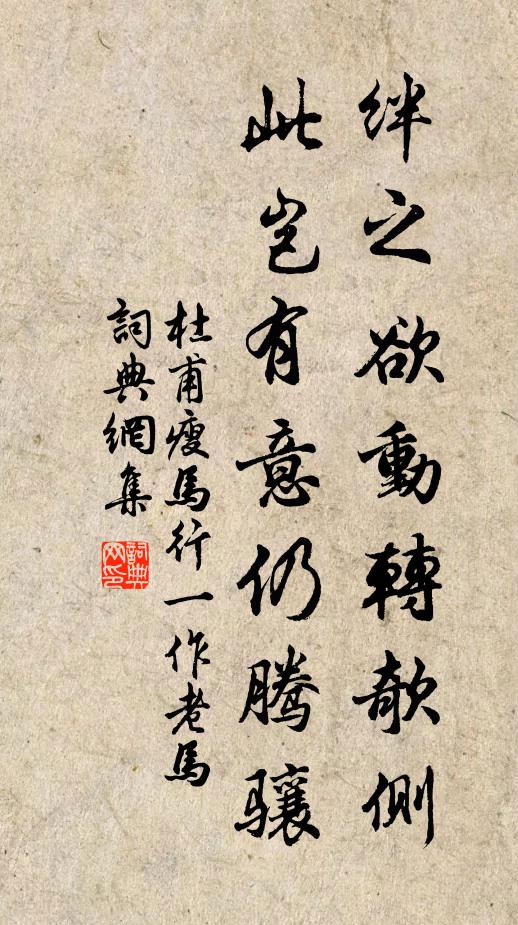 絆之欲動轉欹側
此豈有意仍騰驤
杜甫瘦馬行一作老馬
詞典網集
詞典网印